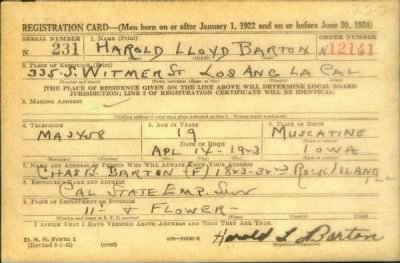 REGISTRATION CARD—(Men born on or after January 1, 1922 and on or before June 30, 1924)
SERIAL NUMBER 1. NAME (Print) ORDER NUMBER
N. 231 HAROLD LLOYD BARTON A 12141
2. PLACE OF RESIDENCE (Print)
335 S. WITMER ST LOS ANG LA CAL
[THE PLACE OF RESIDENCE GIVEN ON THE LINE ABOVE WILL DETERMINE LOCAL BOARD
JURISDICTION; LINE 2 OF REGISTRATION CERTIFICATE WILL BE IDENTICAL]
3. MAILING ADDRESS
4. TELEPHONE 5. AGE IN YEARS 6. PLACE OF BIRTH
MA 3458 19 MUSCATINE
DATE OF BIRTH
APL 14 - 1923 IOWA
7. NAME AND ADDRESS OF PERSON WHO WILL ALWAYS KNOW YOUR ADDRESS
CHAS B. BARTON (F) ROCK ISLAND
8. EMPLOYER'S NAME AND ADDRESS
CAL STATE EMP. SERV
9. PLACE OF EMPLOYMENT OR BUSINESS
11 - & FLOWER -
I AFFIRM THAT I HAVE VERIFIED ABOVE ANSWERS AND THAT THEY ARE TRUE.
D. S. S. Form 1
(over) Harold L Barton